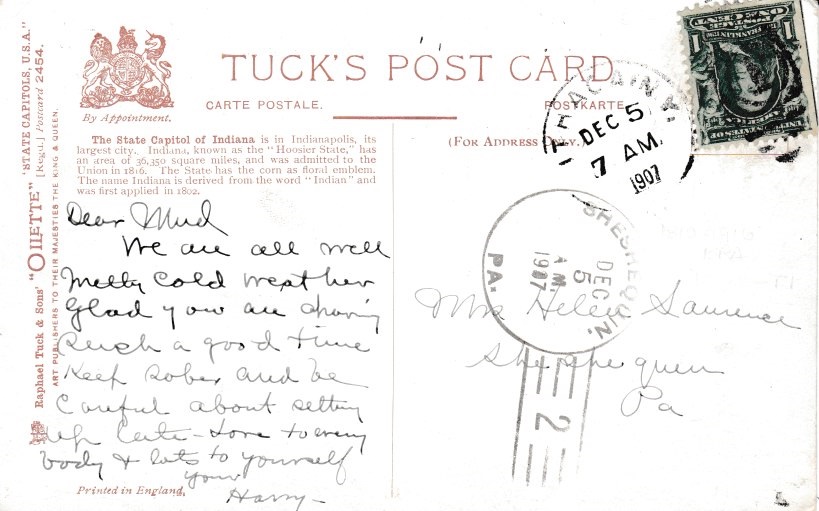 "STATE CAPITOLS, U.S.A."
[Regd.] Postcard 2454.
Raphael Tuck & Sons' "OILETTE"
ART PUBLISHERS TO THEIR MAJESTIES THE KING & QUEEN.
By Appointment.
TUCK'S POST CARD
CARTE POSTALE. POSTKARTE
The State Capitol of Indiana is in Indianapolis, its
largest city. Indiana, known as the "Hoosier State," has
an area of 36,350 square miles, and was admitted to the
Union in 1816. The State has the corn as floral emblem.
The name Indiana is derived from the word "Indian" and
was first applied in 1802.
(For Address Only.)
DEC 5
7 AM
1907
SHESHEQUIN,
DEC
5
A.M.
1907
PA.
2
ONE CENT
1 1
FRANKLIN
POSTAGE
UNITED STATES OF
AMERICA
Dear Mud
We are all well
cold weather
Glad you are having
Such a good time
Keep sober and be
Careful about setting
up late - Love to every
body & lots to yourself
your
Harry -
Mrs Helen
Sheshequin
Pa
Printed in England.